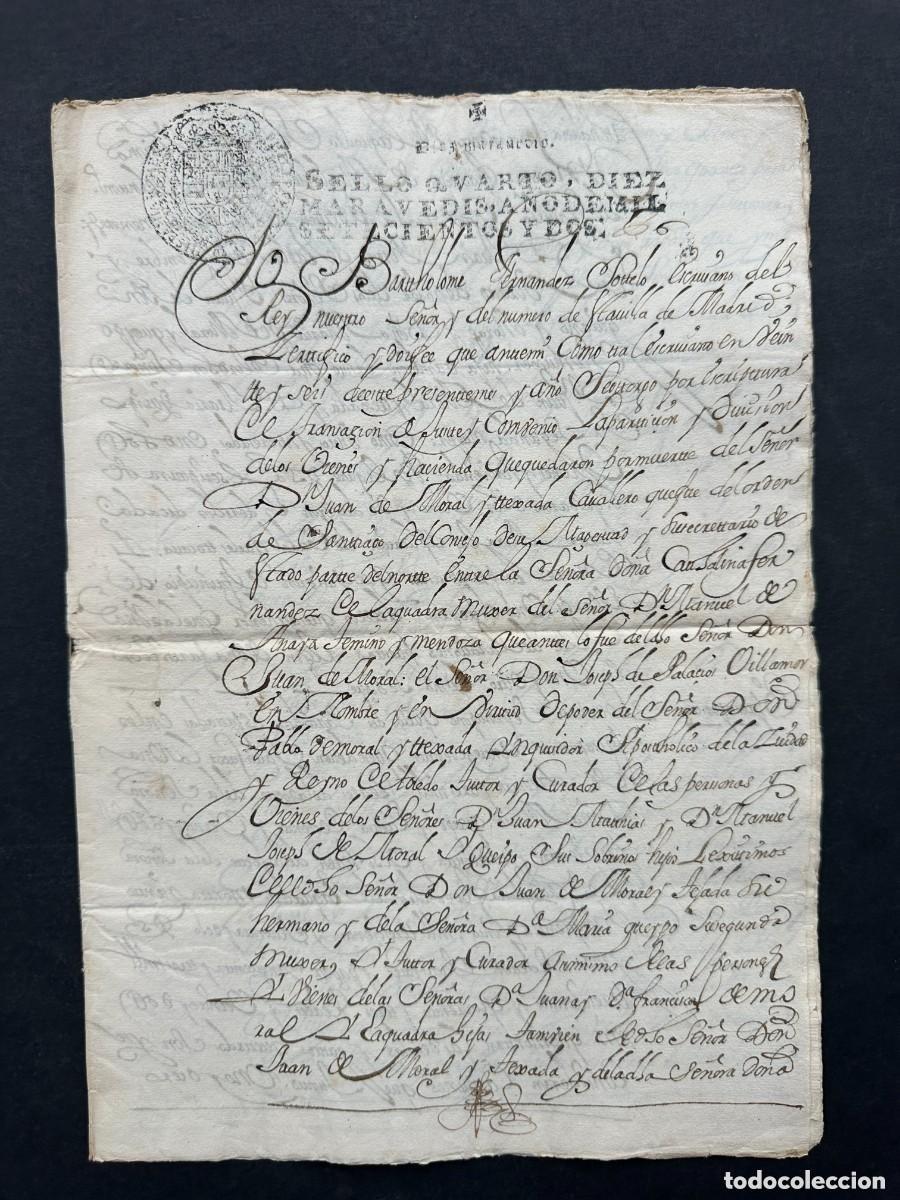 Diez maravedis.
SELLO QVARTO, DIEZ
MARAVEDIS, AÑO DE MIL
SETECIENTOS Y DOS.
Yo Bartholome Fernandez Sottelo escrivano del
Rey nuestro Señor y del numero de stavilla de Madrid
Zertifico y doi fee que antemi Como tal escrivano en Vein
tte y seis deeste presentte mes y año Se otorgo por escriptura
De transazion de Juntte y Convenio La partizion y Divission
de los Vienes y hacienda que quedaron por muertte del Señor
Dn Juan de Moral y ttexada Cavallero que fue del orden
de Santtiago del Consejo de su Magestad y su secrettario de
stado partte del nortte entre la Señora Doña Cathalina fer
nandez de la quadra Muxer del Señor Dn Manuel de
Anaya y mendoza que antes lo fue del dho Señor Don
Juan de Moral: el Señor Don Joseph de Palacios Villamor
En Nombre y en Virttud de poder del Señor Don
Pablo de moral y ttexada Ynquisidor Apostholico de la Ziudad
y Reyno de toledo tuttor y Curador de las personas y
Vienes de los Señores Dn Juan Mathias y Dn Manuel
Joseph de Moral y Queipo Sus Sobrinos hijos Lexitimos
de el dho Señor Don Juan de Moral y tejada su
hermano y de la Señora Da Maria queypo Su segunda
Muxer, y tuttor y Curador assimismo de las personas
y Vienes de las Señoras Da Juana y Da francisca de mo
ral y la quadra hijas tamvien de el dho Señor Don
Juan de Moral y texada y de la dha Señora Doña
todocoleccion